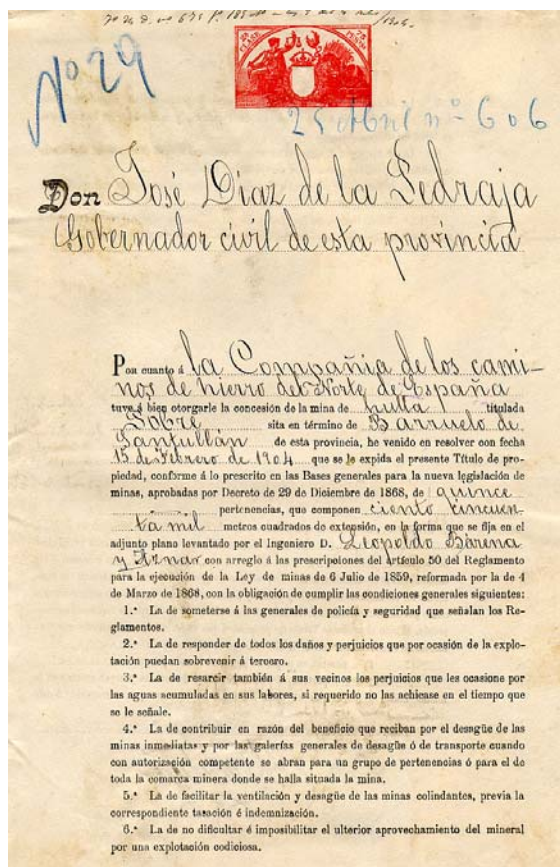 Nº 29
25 Abril nº 606
Don José Díaz de la Pedraja
Gobernador civil de esta provincia
Poa cuanto á la Compañia de los cami-
nos de hierro del Norte de España
tuve á bien otorgarle la concesión de la mina de hulla titulada
Sobre sita en término de Barruelo de
Santullán de esta provincia, he venido en resolver con fecha
15 de Febrero de 1904 que se le expida el presente Título de pro-
piedad, conforme á lo prescrito en las Bases generales para la nueva legislación de
minas, aprobadas por Decreto de 29 de Diciembre de 1868, de quince
pertenencias, que componen ciento cincuen-
ta mil metros cuadrados de extensión, en la forma que se fija en el
adjunto plano levantado por el Ingeniero D. Leopoldo Bárcena
y Aznar con arreglo á las prescripciones del artículo 50 del Reglamento
para la ejecución de la Ley de minas de 6 Julio de 1859, reformada por la de 4
de Marzo de 1868, con la obligación de cumplir las condiciones generales siguientes:
1.ª La de someterse á las generales de policía y seguridad que señalan los Re-
glamentos.
2.ª La de responder de todos los daños y perjuicios que por ocasión de la explo-
tación puedan sobrevenir á tercero.
3.ª La de resarcir también á sus vecinos los perjuicios que les ocasione por
las aguas acumuladas en sus labores, si requerido no las achicase en el tiempo que
se le señale.
4.ª La de contribuir en razón del beneficio que reciban por el desagüe de las
minas inmediatas y por las galerías generales de desagüe ó de transporte cuando
con autorización competente se abran para un grupo de pertenencias ó para el de
toda la comarca minera donde se halla situada la mina.
5.ª La de facilitar la ventilación y desagüe de las minas colindantes, previa la
correspondiente tasación é indemnización.
6.ª La de no dificultar é imposibilitar el ulterior aprovechamiento del mineral
por una explotación codiciosa.